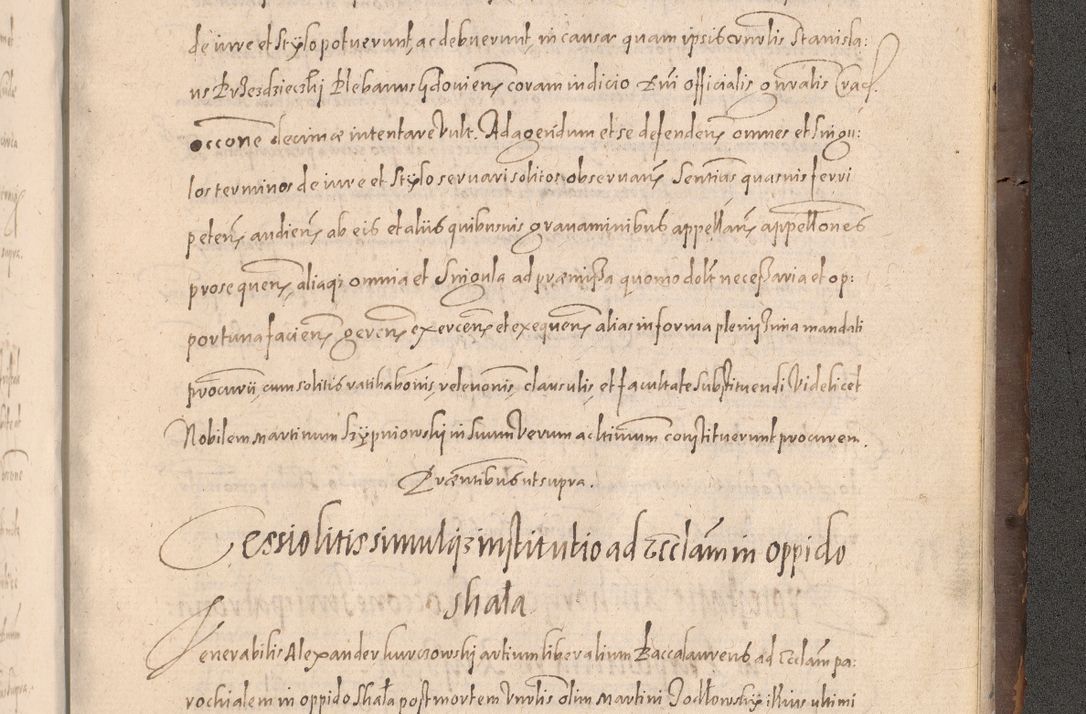 de iure et stÿlo potuerunt, ac debuerunt, in causa quam ipsis vnrlis Stanisla:
us Przezdzieczkij Plebanus coram iudicio Rni Officialis gnralis Crac.
occone decimæ intentare vult. Ad agendum et se defenden, omnes et singu:
los terminos de iure et stÿlo seruari solitos obseruan, Sentias quasuis ferri
peten, audien, ab eis et aliis quibusuis grauaminibus appellan, appellones
prosequen, aliaq; omnia et singula ad præmissa quomodolt necessaria et op:
portuna facien, geren, exercen, et exequen, alias in forma plenij mandati
procurrij, cum solitis ratihabonis, releuonis, clausulis, et facultate substituendi Videlicet
Nobilem Martinum Szÿpniowski in suum verum ac ltimum constituerunt procuren.
Præsentibus ut supra.
Cessio litis simulq; institutio ad Ecclam in oppido
skała
Venerabilis Alexander kurczowskj artium liberalium Baccalaureus ad Ecclam pa:
rochialem in oppido Skała post mortem Vnrlis olim Martini Jodłowskÿ illius ultimi